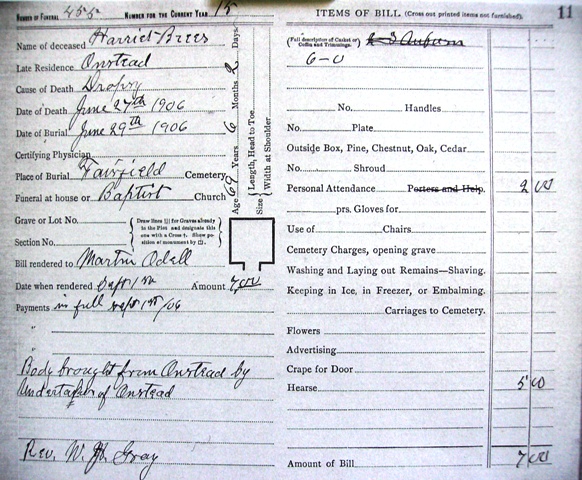 NUMBER OF FUNERAL 455 NUMBER FOR THE CURRENT YEAR 15
Name of deceased Harriet Brees
Late Residence Onstead
Cause of Death Dropsy
Date of Death June 27th 1906
Date of Burial June 29th 1906
Certifying Physician
Place of Burial Fairfield Cemetery
Funeral at house or Baptist Church
Age 69 Years 6 Months 2 Days
Size { Length, Head to Toe.
Width at Shoulder
Grave or Lot No.
Section No.
{ Draw lines ||| for Graves already in the Plot and designate this one with a Cross †. Show position of monument by □. }
Bill rendered to Martin Odell
Date when rendered Sept 1st Amount 7.00
Payments in full Sept 1st /06
"
"
Body brought from Onstead by
Undertaker of Onstead
Rev. W. Gray
ITEMS OF BILL (Cross out printed items not furnished). 11
(Full description of Casket or Coffin and Trimmings.) Auburn
6-0
No. Handles
No. Plate
Outside Box, Pine, Chestnut, Oak, Cedar
No. Shroud
Personal Attendance Porters and Help. 2 00
prs. Gloves for
Use of Chairs
Cemetery Charges, opening grave
Washing and Laying out Remains—Shaving.
Keeping in Ice, in Freezer, or Embalming.
Carriages to Cemetery.
Flowers
Advertising
Crape for Door
Hearse 5 00
Amount of Bill 7 00